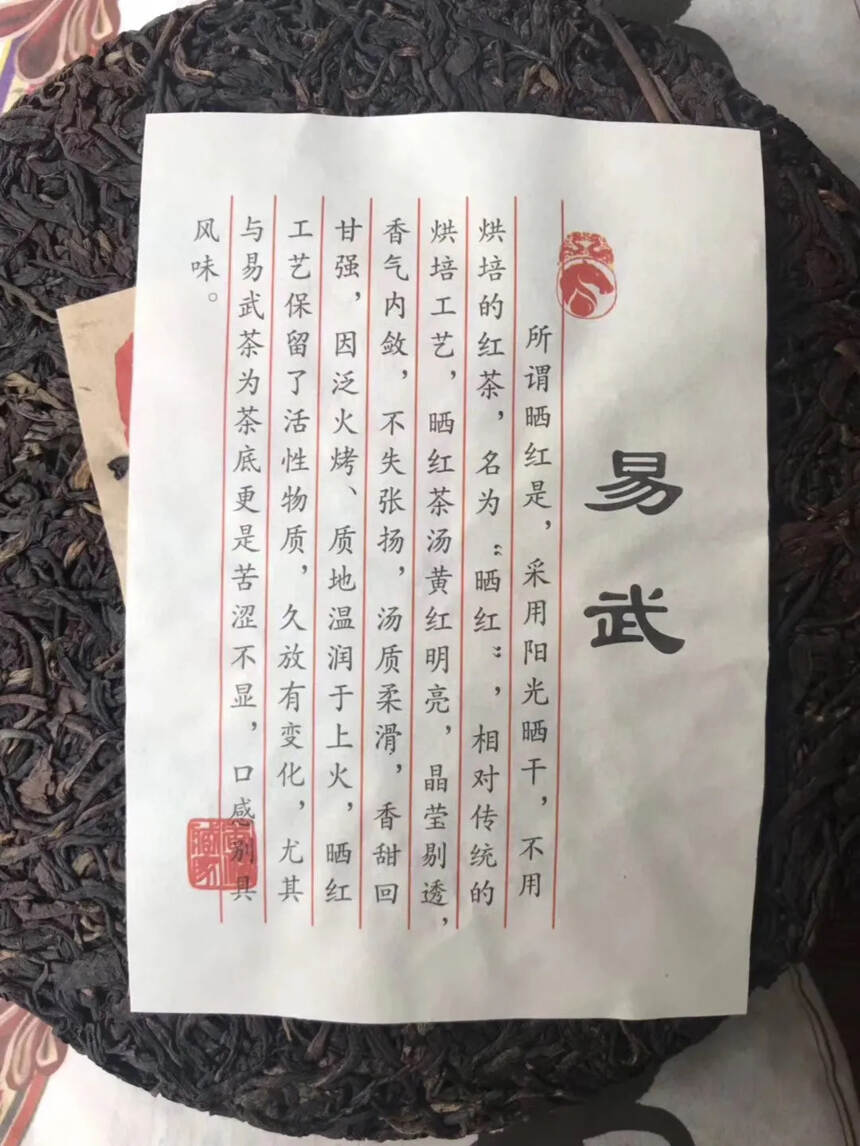 易武
所谓晒红是，采用阳光晒干，不用
烘培的红茶，名为“晒红”，相对传统的
烘培工艺，晒红茶汤黄红明亮，晶莹剔透，
香气内敛，不失张扬，汤质柔滑，香甜回
甘强，因泛火烤、质地温润于上火，晒红
工艺保留了活性物质，久放有变化，尤其
与易武茶为茶底更是苦涩不显，口感别具
风味。